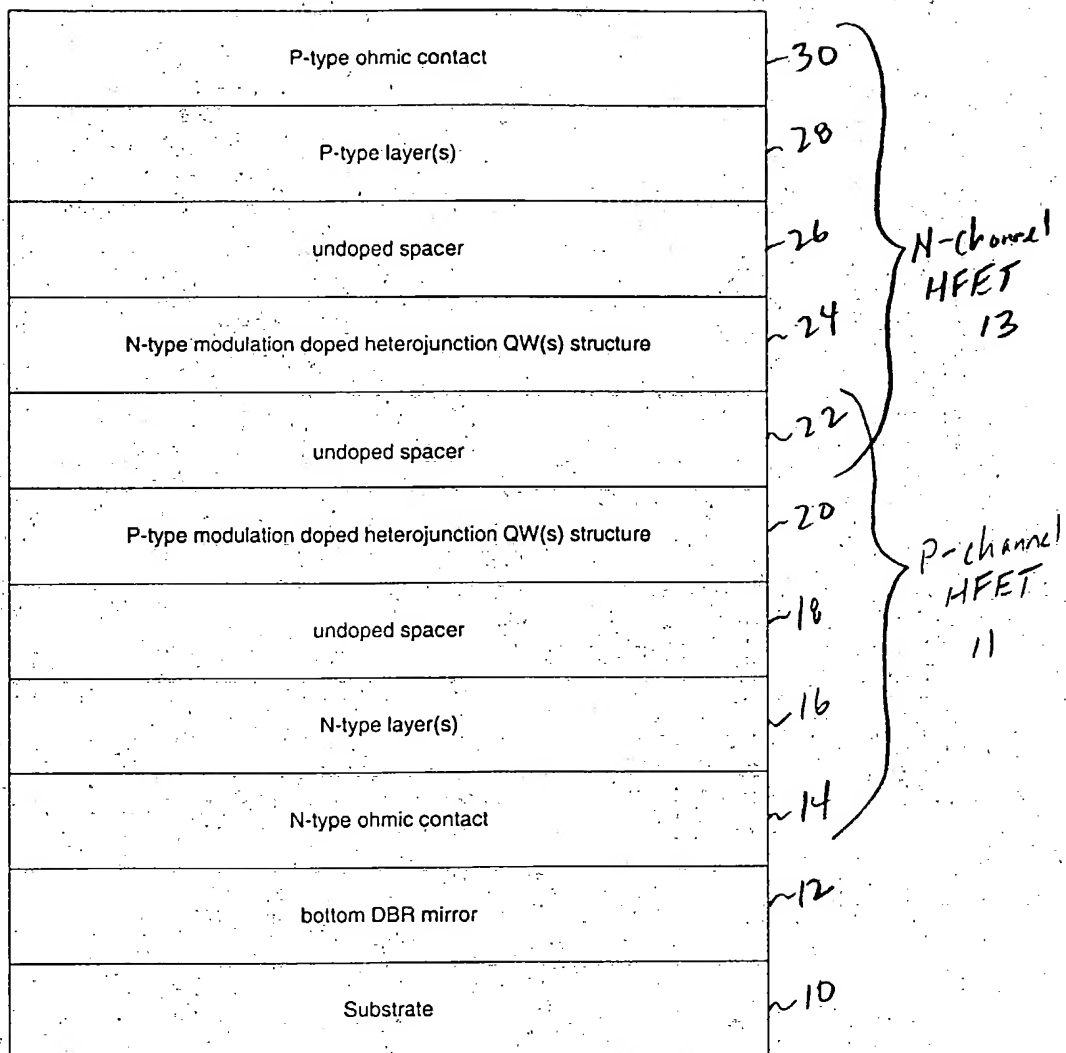 P-type ohmic contact
30
P-type layer(s)
28
undoped spacer
26
N-type modulation doped heterojunction QW(s) structure
24
undoped spacer
22
P-type modulation doped heterojunction QW(s) structure
20
undoped spacer
18
N-type layer(s)
16
N-type ohmic contact
14
bottom DBR mirror
12
Substrate
10
N-channel
HFET
13
P-channel
HFET
11